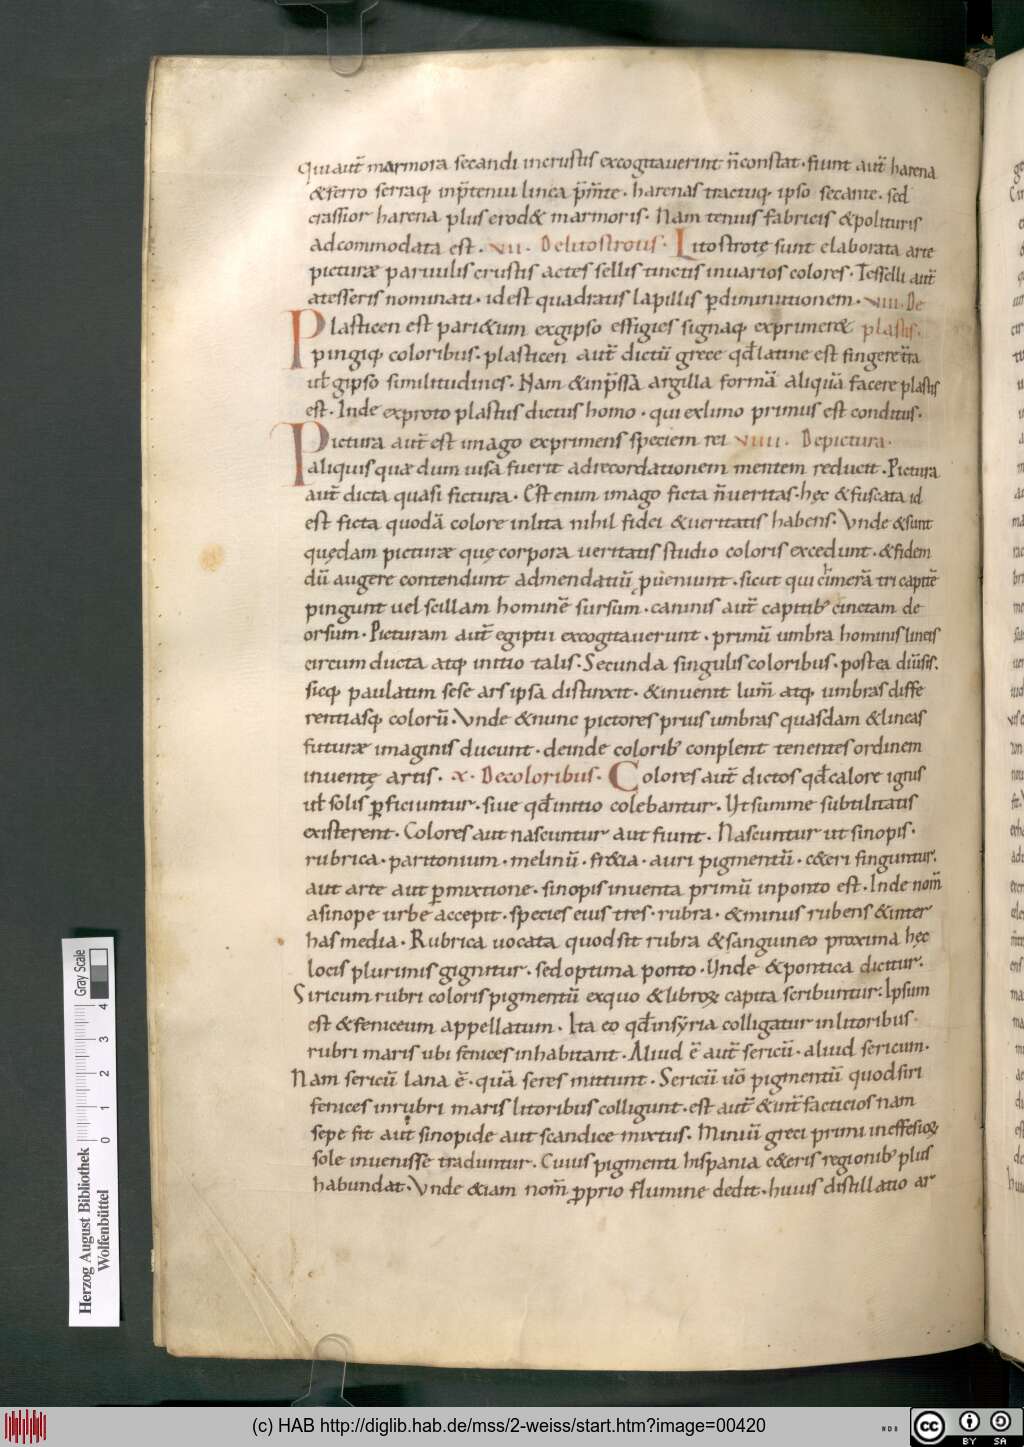 Qui aut̄ marmora secandi in crustis excogitauerint n̄ constat · fiunt aut̄ harena
& ferro serraq; inp̄tenui linea p̄m̄te · harenas tractuq; ipso secante · sed
crassior harena plus erod& marmoris · Nam tenuis fabricis & polituris
adcommodata est · VII · De litostrotis · Litostrotę sunt elaborata arte
picturæ paruulis crustis actessellis tinctis in uarios colores · Tesselli aut̄
a tesseris nominati · id est quadratis lapillis p̱ diminutionem · VIII · De
Plasticen est pari&um ex gipso effigies signaq; exprimere& plastis ·
pingiq; coloribus · plasticen aut̄ dictū grece qđ latine est fingere t̄ra
uł gipso similitudines · Nam & inp̄ssa argilla formā aliquā facere plastis
est · Inde ex proto plastus dictus homo · qui ex limo primus est conditus ·
Pictura aut̄ est imago exprimens speciem rei VIIII · De pictura ·
aliquis quæ dum uisa fuerit ad recordationem mentem reducit · Pictura
aut̄ dicta quasi fictura · Est enim imago ficta n̄ ueritas · hęc & fuscata id
est ficta quodā colore inlita nihil fidei & ueritatis habens · Vnde & sunt
quędam picturæ quę corpora ueritatis studio coloris excedunt · & fidem
dū augere contendunt ad mendatiū p̱ueniunt · sicut qui cimerā tricapitē
pingunt uel scillam hominē sursum · caninis aut̄ capitib; cinctam de
orsum · Picturam aut̄ egiptii excogitauerunt · primū umbra hominis lineis
circum ducta atq; initio talis · Secunda singulis coloribus · postea diūsis ·
sicq; paulatim sese ars ipsa distinxit · & inuenit lum̄ atq; umbras diffe
rentiasq; colorū · Vnde & nunc pictores prius umbras quasdam & lineas
futuræ imaginis ducunt · deinde colorib; conplent tenentes ordinem
inuentę artis · X · De coloribus · Colores aut̄ dictos qđ calore ignis
uł solis p̱ficiuntur · siue qđ initio colebantur · Ut summe subtilitatis
existerent · Colores aut nascuntur aut fiunt · Nascuntur ut sinopis ·
rubrica · paritonium · melinū · fr&ia · auri pigmentū · c&eri finguntur ·
aut arte aut p̱mixtione · sinopis inuenta primū in ponto est · Inde nom̄
a sinope urbe accepit · species eius tres · rubra · & minus rubens & inter
has media · Rubrica uocata quod sit rubra & sanguineo proxima hęc
locis plurimis gignitur · sed optima ponto · Unde & pontica dicitur ·
Siricum rubri coloris pigmentū ex quo & libroꝝ capita scribuntur · Ipsum
est & feniceum appellatum · Ita eo qđ in syria colligatur in litoribus ·
rubri maris ubi fenices inhabitant · Aliud ē aut̄ sericū · aliud sericum ·
Nam sericū lana ē · quā seres mittunt · Sericū uō pigmentū quod siri
fenices in rubri maris litoribus colligunt · est aut̄ & int̄ facticios nam
sepe fit aut sinopide aut scandice mixtus · Miniū greci primi in effesioꝝ
sole inuenisse traduntur · Cuius pigmenti hispania c&eris regionib; plus
habundat · Vnde &iam nom̄ p̱prio flumine dedit · huius distillatio ar
Herzog August Bibliothek
Wolfenbüttel
0 1 2 3 4
Gray Scale
(c) HAB http://diglib.hab.de/mss/2-weiss/start.htm?image=00420
cc BY SA